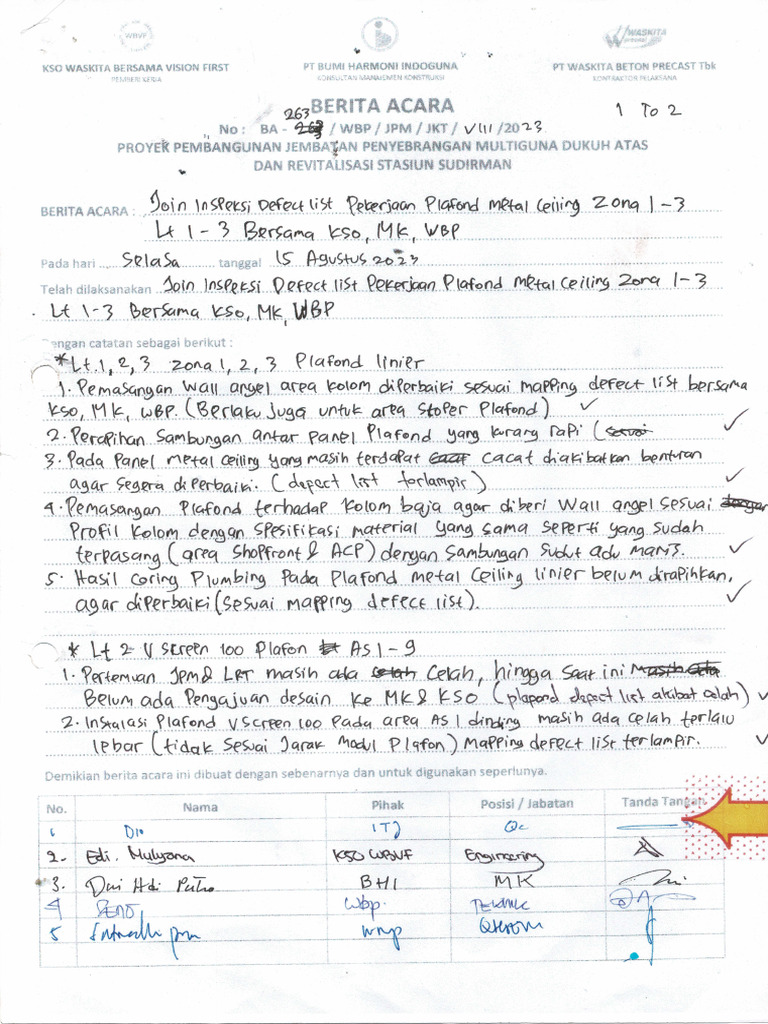 WBVF
WASKITA
precast
KSO WASKITA BERSAMA VISION FIRST
PEMBERI KERJA
PT BUMI HARMONI INDOGUNA
KONSULTAN MANAJEMEN KONSTRUKSI
PT WASKITA BETON PRECAST Tbk
KONTRAKTOR PELAKSANA
BERITA ACARA
1 To 2
263
No : BA - / WBP / JPM / JKT / VIII /2023
PROYEK PEMBANGUNAN JEMBATAN PENYEBRANGAN MULTIGUNA DUKUH ATAS
DAN REVITALISASI STASIUN SUDIRMAN
BERITA ACARA : Join Inspeksi Defect list Pekerjaan Plafond Metal Ceiling Zona 1-3
Lt 1-3 Bersama KSO, MK, WBP
Pada hari Selasa tanggal 15 Agustus 2023
Telah dilaksanakan Join Inspeksi Defect list Pekerjaan Plafond Metal Ceiling Zona 1-3
Lt 1-3 Bersama KSO, MK, WBP
Dengan catatan sebagai berikut :
* Lt. 1, 2, 3 Zona 1, 2, 3 Plafond linier
1. Pemasangan Wall angel area kolom diperbaiki sesuai mapping defect list bersama
KSO, MK, WBP. (Berlaku Juga untuk area Stoper Plafond) ✓
2. Perapihan Sambungan antar panel Plafond yang kurang rapi ( ✓
3. Pada Panel metal ceiling yang masih terdapat cacat diakibatkan benturan
agar segera diperbaiki. (defect list terlampir) ✓
4. Pemasangan Plafond terhadap Kolom baja agar diberi Wall angel Sesuai
Profil Kolom dengan Spesifikasi material yang sama seperti yang sudah
terpasang (area Shopfront & ACP) dengan Sambungan Sudut adu manis. ✓
5. Hasil Coring Plumbing Pada Plafond metal Ceiling linier belum dirapihkan,
agar diperbaiki (Sesuai mapping defect list). ✓
* Lt 2 V Screen 100 Plafon AS 1-9
1. Pertemuan JPM & LRT masih ada Celah, hingga saat ini
Belum ada Pengajuan desain ke MK & KSO (plapond defect list akibat celah) ✓
2. Instalasi Plafond V Screen 100 Pada area AS 1 dinding masih ada celah terlalu
lebar (tidak Sesuai Jarak Modul Plafon) Mapping defect list terlampir. ✓
Demikian berita acara ini dibuat dengan sebenarnya dan untuk digunakan seperlunya.
No. Nama Pihak Posisi / Jabatan Tanda Tangan
1 Dio ITJ QC
2. Edi. Mulyana KSO WBVF Engineering
3. Dwi Adi Putro BHI MK
4 Wbp. TEKNIK
5